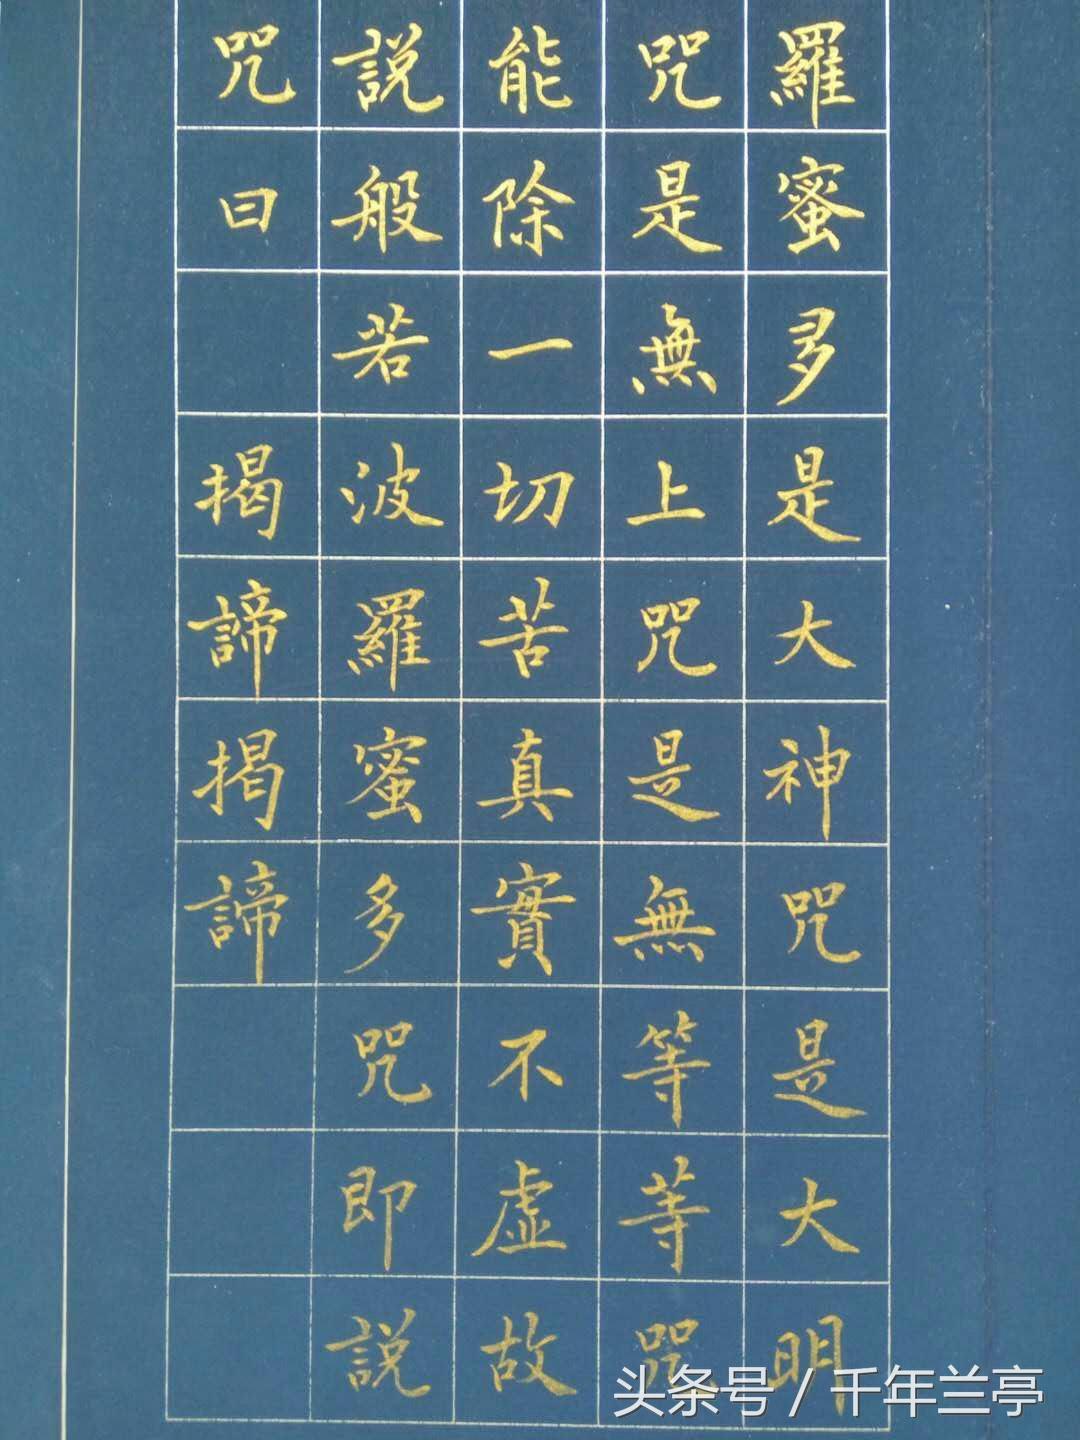 羅蜜多是大神咒是大明
咒是無上咒是無等等咒
能除一切苦真實不虛故
說般若波羅蜜多咒即說
咒曰 揭諦揭諦
头条号 / 千年兰亭